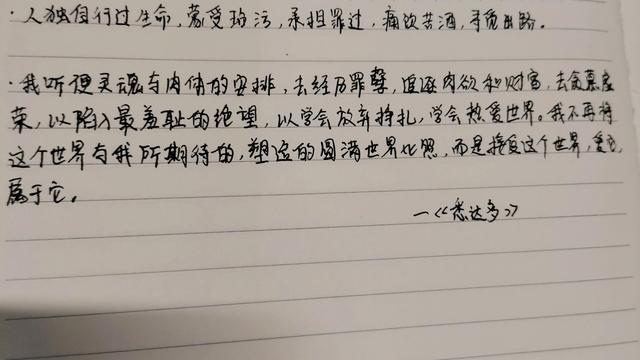 ·人独自行过生命,蒙受玷污,承担罪过,痛饮苦酒,寻觅出路。
·我听从灵魂与肉体的安排,去经历罪孽,追逐肉欲和财富,去贪慕虚
荣,以陷入最羞耻的绝望,以学会放弃挣扎,学会热爱世界。我不再将
这个世界与我所期待的,塑造的圆满世界比照,而是接受这个世界,爱它,
属于它。
—《悉达多》